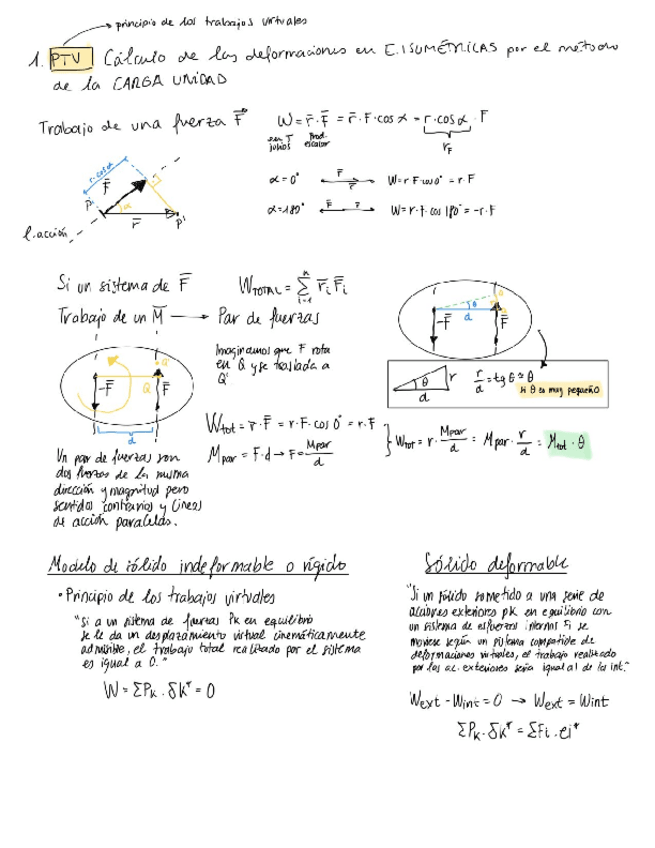 principio de los trabajos virtuales
1. PTV Cálculo de las deformaciones en E. ISOMÉTRICAS por el método
de la CARGA UNIDAD
Trabajo de una fuerza F⃗
W = r̄ · F̄ = r̄ · F · cos α = r · cos α · F
en J
julios
Prod.
escalar
r_F
α = 0° F r W = r F cos 0° = r · F
α = 180° F r W = r · F · cos 180° = -r · F
r·cos α
F̄
α
P
r̄
P'
l. acción
Si un sistema de F̄ W_TOTAL = Σ r̄i F̄i
i=1
n
Trabajo de un M̄ → Par de fuerzas
Imaginamos que F rota
en Q y se traslada a
Q'
-F̄ Q Q' F̄
d
-F̄ d θ F̄
θ r d
r/d = tg θ ≈ θ
si θ es muy pequeño
W_tot = r̄ · F̄ = r · F · cos 0° = r · F
M_par = F · d → F = M_par/d
W_tot = r · M_par/d = M_par · r/d = M_tot · θ
Un par de fuerzas son
dos fuerzas de la misma
dirección y magnitud pero
sentidos contrarios y líneas
de acción paralelas.
Modelo de sólido indeformable o rígido
• Principio de los trabajos virtuales
"Si a un sistema de fuerzas Pk en equilibrio
se le da un desplazamiento virtual cinemáticamente
admisible, el trabajo total realizado por el sistema
es igual a 0."
W = ΣPk · δk* = 0
Sólido deformable
"Si un sólido sometido a una serie de
acciones exteriores pk en equilibrio con
un sistema de esfuerzos internos Fi se
moviese según un sistema compatible de
deformaciones virtuales, el trabajo realizado
por las ac. exteriores sería igual al de la int."
Wext - Wint = 0 → Wext = Wint
ΣPk · δk* = ΣFi · ei*